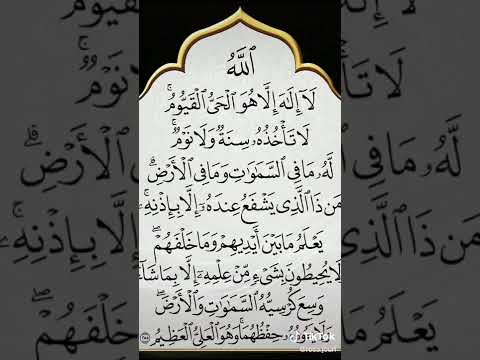 ٱللَّهُ
لَآ إِلَـٰهَ إِلَّا هُوَ ٱلْحَىُّ ٱلْقَيُّومُ ۚ
لَا تَأْخُذُهُۥ سِنَةٌ وَلَا نَوْمٌ ۚ
لَّهُۥ مَا فِى ٱلسَّمَـٰوَٰتِ وَمَا فِى ٱلْأَرْضِ ۗ
مَن ذَا ٱلَّذِى يَشْفَعُ عِندَهُۥٓ إِلَّا بِإِذْنِهِۦ ۚ
يَعْلَمُ مَا بَيْنَ أَيْدِيهِمْ وَمَا خَلْفَهُمْ ۖ
لَا يُحِيطُونَ بِشَىْءٍ مِّنْ عِلْمِهِۦٓ إِلَّا بِمَا شَآءَ
وَسِعَ كُرْسِيُّهُ ٱلسَّمَـٰوَٰتِ وَٱلْأَرْضَ ۖ
وَلَا يَـُٔودُهُۥ حِفْظُهُمَا ۚ وَهُوَ ٱلْعَلِىُّ ٱلْعَظِيمُ
TikTok